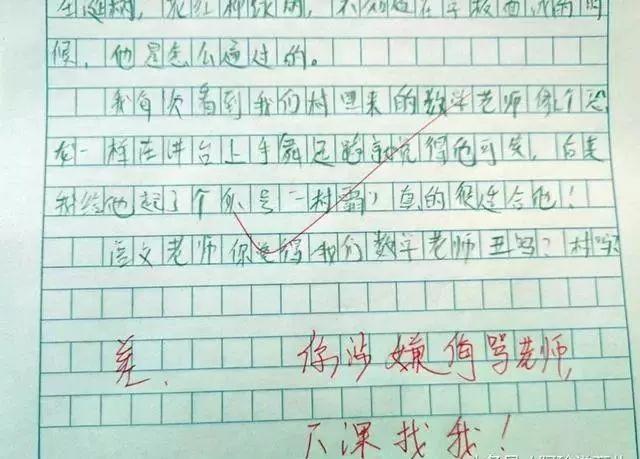 花红柳绿的，不知道在学校面试的时
候，他是怎么通过的。
我每次看到我们村里来的数学老师像个恐
龙一样在讲台上手舞足蹈就觉得他可笑，后来
我给他起了个外号（村霸）真的很适合他！
语文老师你觉得我们数学老师丑吗？村吗
差. 你涉嫌侮骂老师，
下课找我！